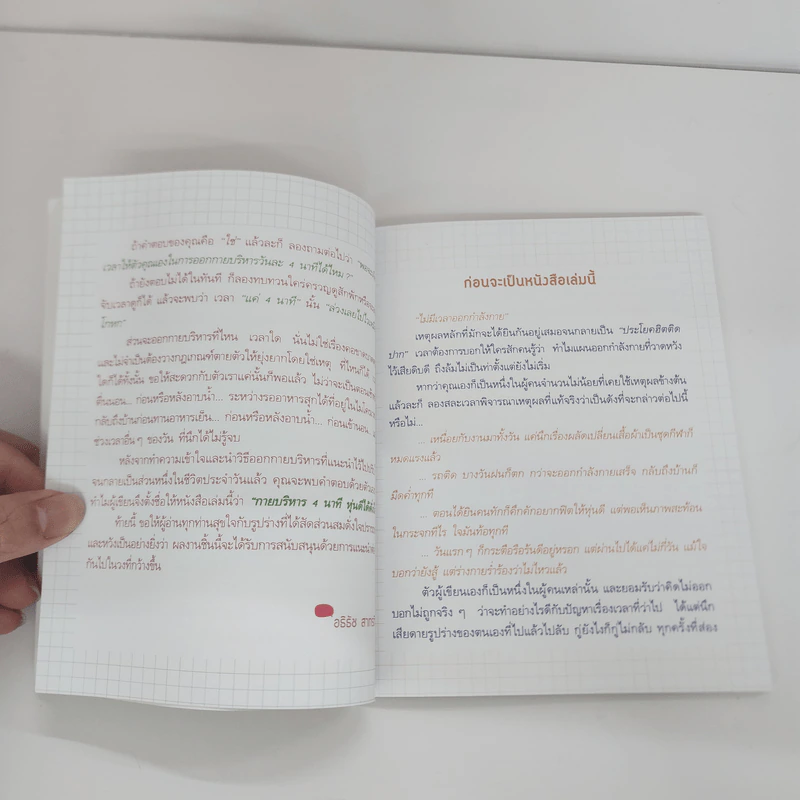 ถ้าคำตอบของคุณคือ "ใช่" แล้วละก็ ลองถามต่อไปว่า
เวลาให้ตัวคุณเองในการออกกายบริหารวันละ 4 นาทีได้ไหม ?"
ถ้ายังตอบไม่ได้ในทันที ก็ลองทบทวนใคร่ครวญดูสักพักหรือ
จับเวลาดูก็ได้ แล้วจะพบว่า เวลา "แค่ 4 นาที" นั้น
โกหก"
ส่วนจะออกกายบริหารที่ไหน เวลาใด นั่นไม่ใช่เรื่อง
และไม่จำเป็นต้องวางกฎเกณฑ์ตายตัวให้ยุ่งยากโดยใช่เหตุ ที่ไหนก็ได้
ใดก็ได้ทั้งนั้น ขอให้สะดวกกับตัวเราแค่นั้นก็พอแล้ว ไม่ว่าจะเป็นตอน
ตื่นนอน... ก่อนหรือหลังอาบน้ำ... ระหว่างรออาหารสุกได้ที่อยู่ใน
กลับถึงบ้านก่อนทานอาหารเย็น... ก่อนหรือหลังอาบน้ำ... ก่อนเข้านอน
ช่วงเวลาอื่นๆ ของวัน ที่นึกได้ไม่รู้จบ
หลังจากทำความเข้าใจและนำวิธีออกกายบริหารที่แนะนำไว้
จนกลายเป็นส่วนหนึ่งในชีวิตประจำวันแล้ว คุณจะพบคำตอบด้วยตัว
ทำไมผู้เขียนจึงตั้งชื่อให้หนังสือเล่มนี้ว่า "กายบริหาร 4 นาที หุ่นดีได้
ท้ายนี้ ขอให้ผู้อ่านทุกท่านสุขใจกับรูปร่างที่ได้สัดส่วนสมดังใจ
และหวังเป็นอย่างยิ่งว่า ผลงานชิ้นนี้จะได้รับการสนับสนุนด้วยการแนะนำ
กันไปในวงที่กว้างขึ้น
อธิธัช
ก่อนจะเป็นหนังสือเล่มนี้
"ไม่มีเวลาออกกำลังกาย"
เหตุผลหลักที่มักจะได้ยินกันอยู่เสมอจนกลายเป็น "ประโยคฮิตติด
ปาก" เวลาต้องการบอกให้ใครสักคนรู้ว่า ทำไมแผนออกกำลังกายที่วาดหวัง
ไว้เสียดิบดี ถึงล้มไม่เป็นท่าตั้งแต่ยังไม่เริ่ม
หากว่าคุณเองก็เป็นหนึ่งในผู้คนจำนวนไม่น้อยที่เคยใช้เหตุผลข้างต้น
แล้วละก็ ลองสละเวลาพิจารณาเหตุผลที่แท้จริงว่าเป็นดังที่จะกล่าวต่อไปนี้
หรือไม่...
... เหนื่อยกับงานมาทั้งวัน แค่นึกเรื่องผลัดเปลี่ยนเสื้อผ้าเป็นชุดกีฬาก็
หมดแรงแล้ว
... รถติด บางวันฝนก็ตก กว่าจะออกกำลังกายเสร็จ กลับถึงบ้านก็
มืดค่ำทุกที
... ตอนได้ยินคนทักก็คึกคักอยากฟิตให้หุ่นดี แต่พอเห็นภาพสะท้อน
ในกระจกทีไร ใจมันท้อทุกที
... วันแรกๆ ก็กระตือรือร้นดีอยู่หรอก แต่ผ่านไปได้แค่ไม่กี่วัน แม้ใจ
บอกว่ายังสู้ แต่ร่างกายร่ำร้องว่าไม่ไหวแล้ว
ตัวผู้เขียนเองก็เป็นหนึ่งในผู้คนเหล่านั้น และยอมรับว่าคิดไม่ออก
บอกไม่ถูกจริงๆ ว่าจะทำอย่างไรดีกับปัญหาเรื่องเวลาที่ว่าไป ได้แต่นึก
เสียดายรูปร่างของตนเองที่ไปแล้วไปลับ กู่ยังไงก็กู่ไม่กลับ ทุกครั้งที่ส่อง